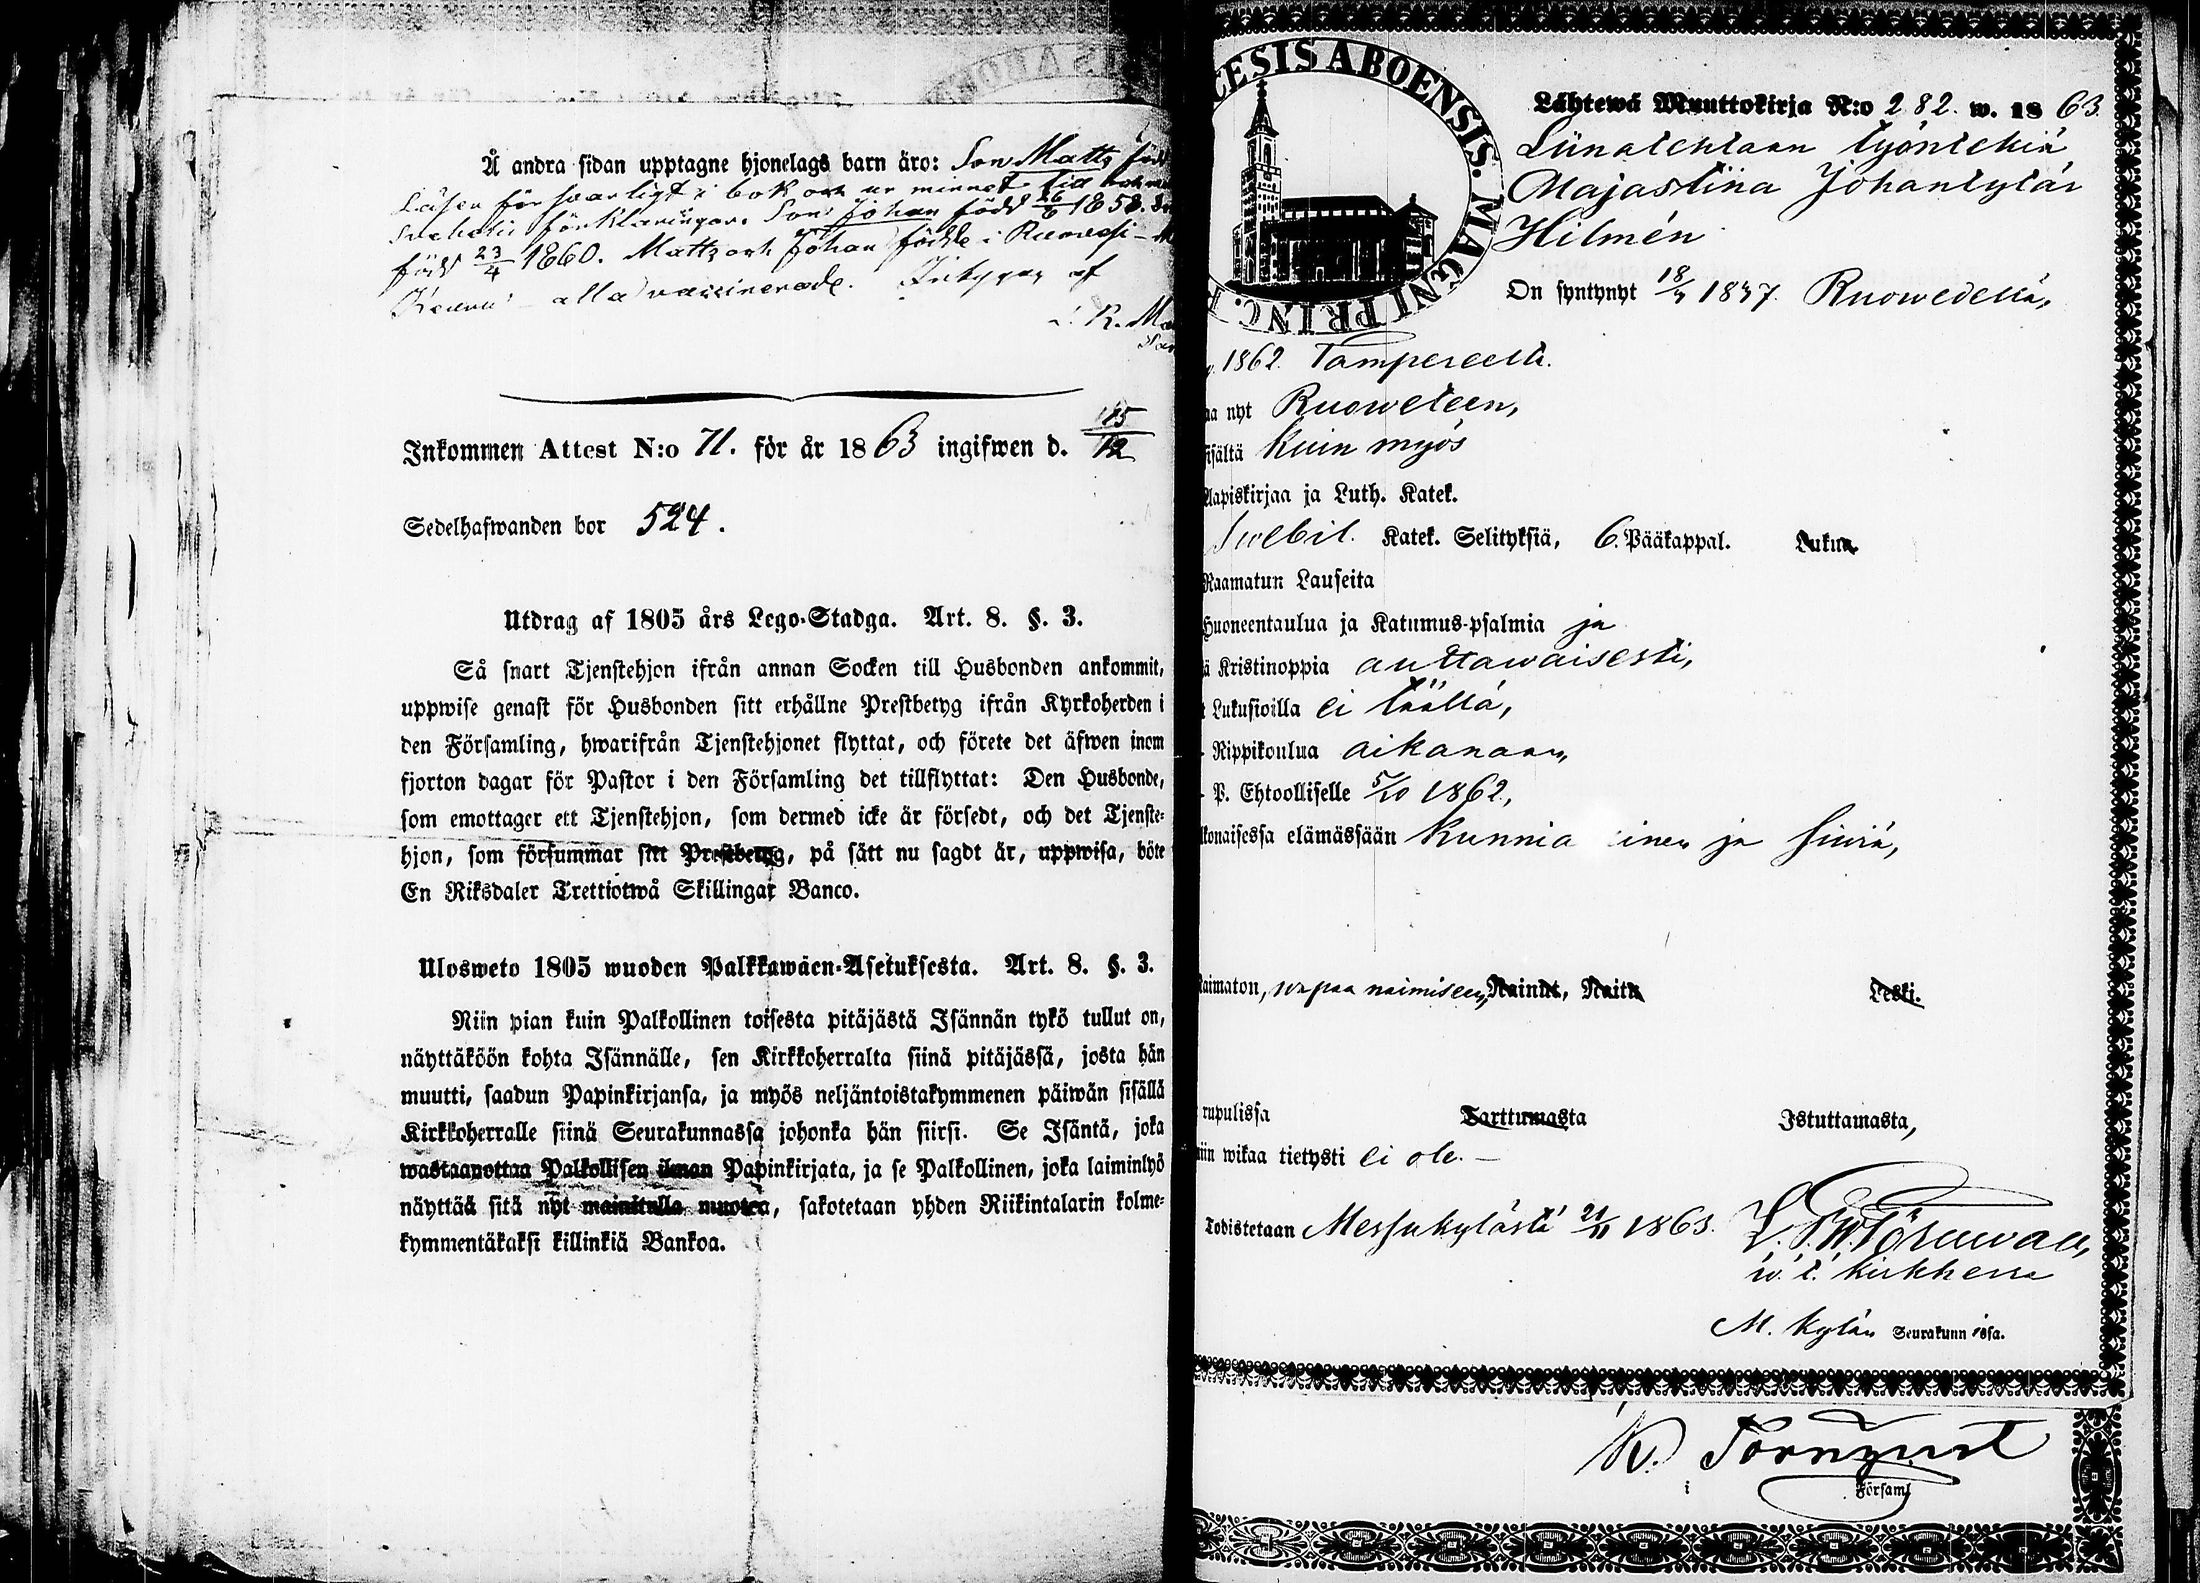 Å andra sidan upptagne hjonelags barn äro: Son Matts född
Läser försvarligt i bok och ur minnet till
förklaringar. Son Johan född 26/6 1858.
född 23/4 1860. Matts och Johan födde i Ruovesi
alla vaccinerade. Intygar af
Inkommen Attest N:o 71. för år 1863 ingifwen d. 15/12
Sedelhafwanden bor 524.
Utdrag af 1805 års Lego-Stadga. Art. 8. §. 3.
Så snart Tjenstehjon ifrån annan Socken till Husbonden ankommit,
uppwise genast för Husbonden sitt erhållne Prestbetyg ifrån Kyrkoherden i
den Församling, hwarifrån Tjenstehjonet flyttat, och förete det äfwen inom
fjorton dagar för Pastor i den Församling det tillflyttat: Den Husbonde,
som emottager ett Tjenstehjon, som dermed icke är försedt, och det Tjenste-
hjon, som försummar sitt Prestbetyg, på sätt nu sagdt är, uppwisa, böte
En Riksdaler Trettiotwå Skillingar Banco.
Ulosweto 1805 wuoden Palkkawäen-Asetuksesta. Art. 8. §. 3.
Niin pian kuin Palkollinen toisesta pitäjästä Isännän tykö tullut on,
näyttäköön kohta Isännälle, sen Kirkkoherralta siinä pitäjässä, josta hän
muutti, saadun Papinkirjansa, ja myös neljäntoistakymmenen päiwän sisällä
Kirkkoherralle siinä Seurakunnassa johonka hän siirsi. Se Isäntä, joka
wastaanottaa Palkollisen ilman Papinkirjata, ja se Palkollinen, joka laiminlyö
näyttää sitä nyt mainitulla muotoa, sakotetaan yhden Riikintalarin kolme-
kymmentäkaksi killinkiä Bankoa.
ESIS ABOENSIS. MAGNI PRINC.
Lähtewä Muuttokirja N:o 282. w. 1863.
Liinatehtaan työntekiä
Majastina Johantytär
Hilmén
On syntynyt 18/4 1837. Ruowedellä,
1862. Tampereelle.
nyt Ruoweteen,
sisältä kuin myös
Aapiskirjaa ja Luth. Katek.
Swebil. Katek. Selityksiä, 6. Pääkappal. Lukua.
Raamatun Lauseita
Huoneentaulua ja Katumus-psalmia ja
ä Kristinoppia auttawaisesti,
Lukusioilla ei täällä,
Rippikoulua aikanaan,
P. Ehtoolliselle 5/10 1862,
konaisessa elämässään kunnia inen ja siwiä,
Naimaton, wapaa naimiseen, Nainut, Naitu Leski.
rupulissa Tarttumasta Istuttamasta,
wikaa tietysti ei ole. —
Todistetaan Messukylästä 21/11 1863.
w. t. kirkherra
M. kylän Seurakunnissa.
K. Törnqvist
i Församl